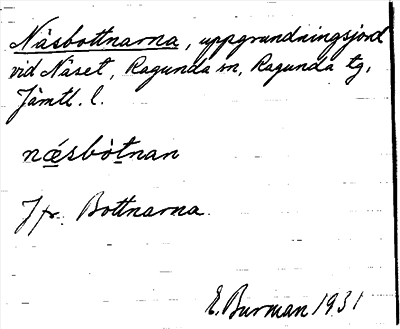 Näsbottnarna, uppgrundningsjord
vid Näset, Ragunda sn, Ragunda tg,
Jämtl. l.
næ̲sbòt̲nan
Jfr. Bottnarna.
E. Burman 1931